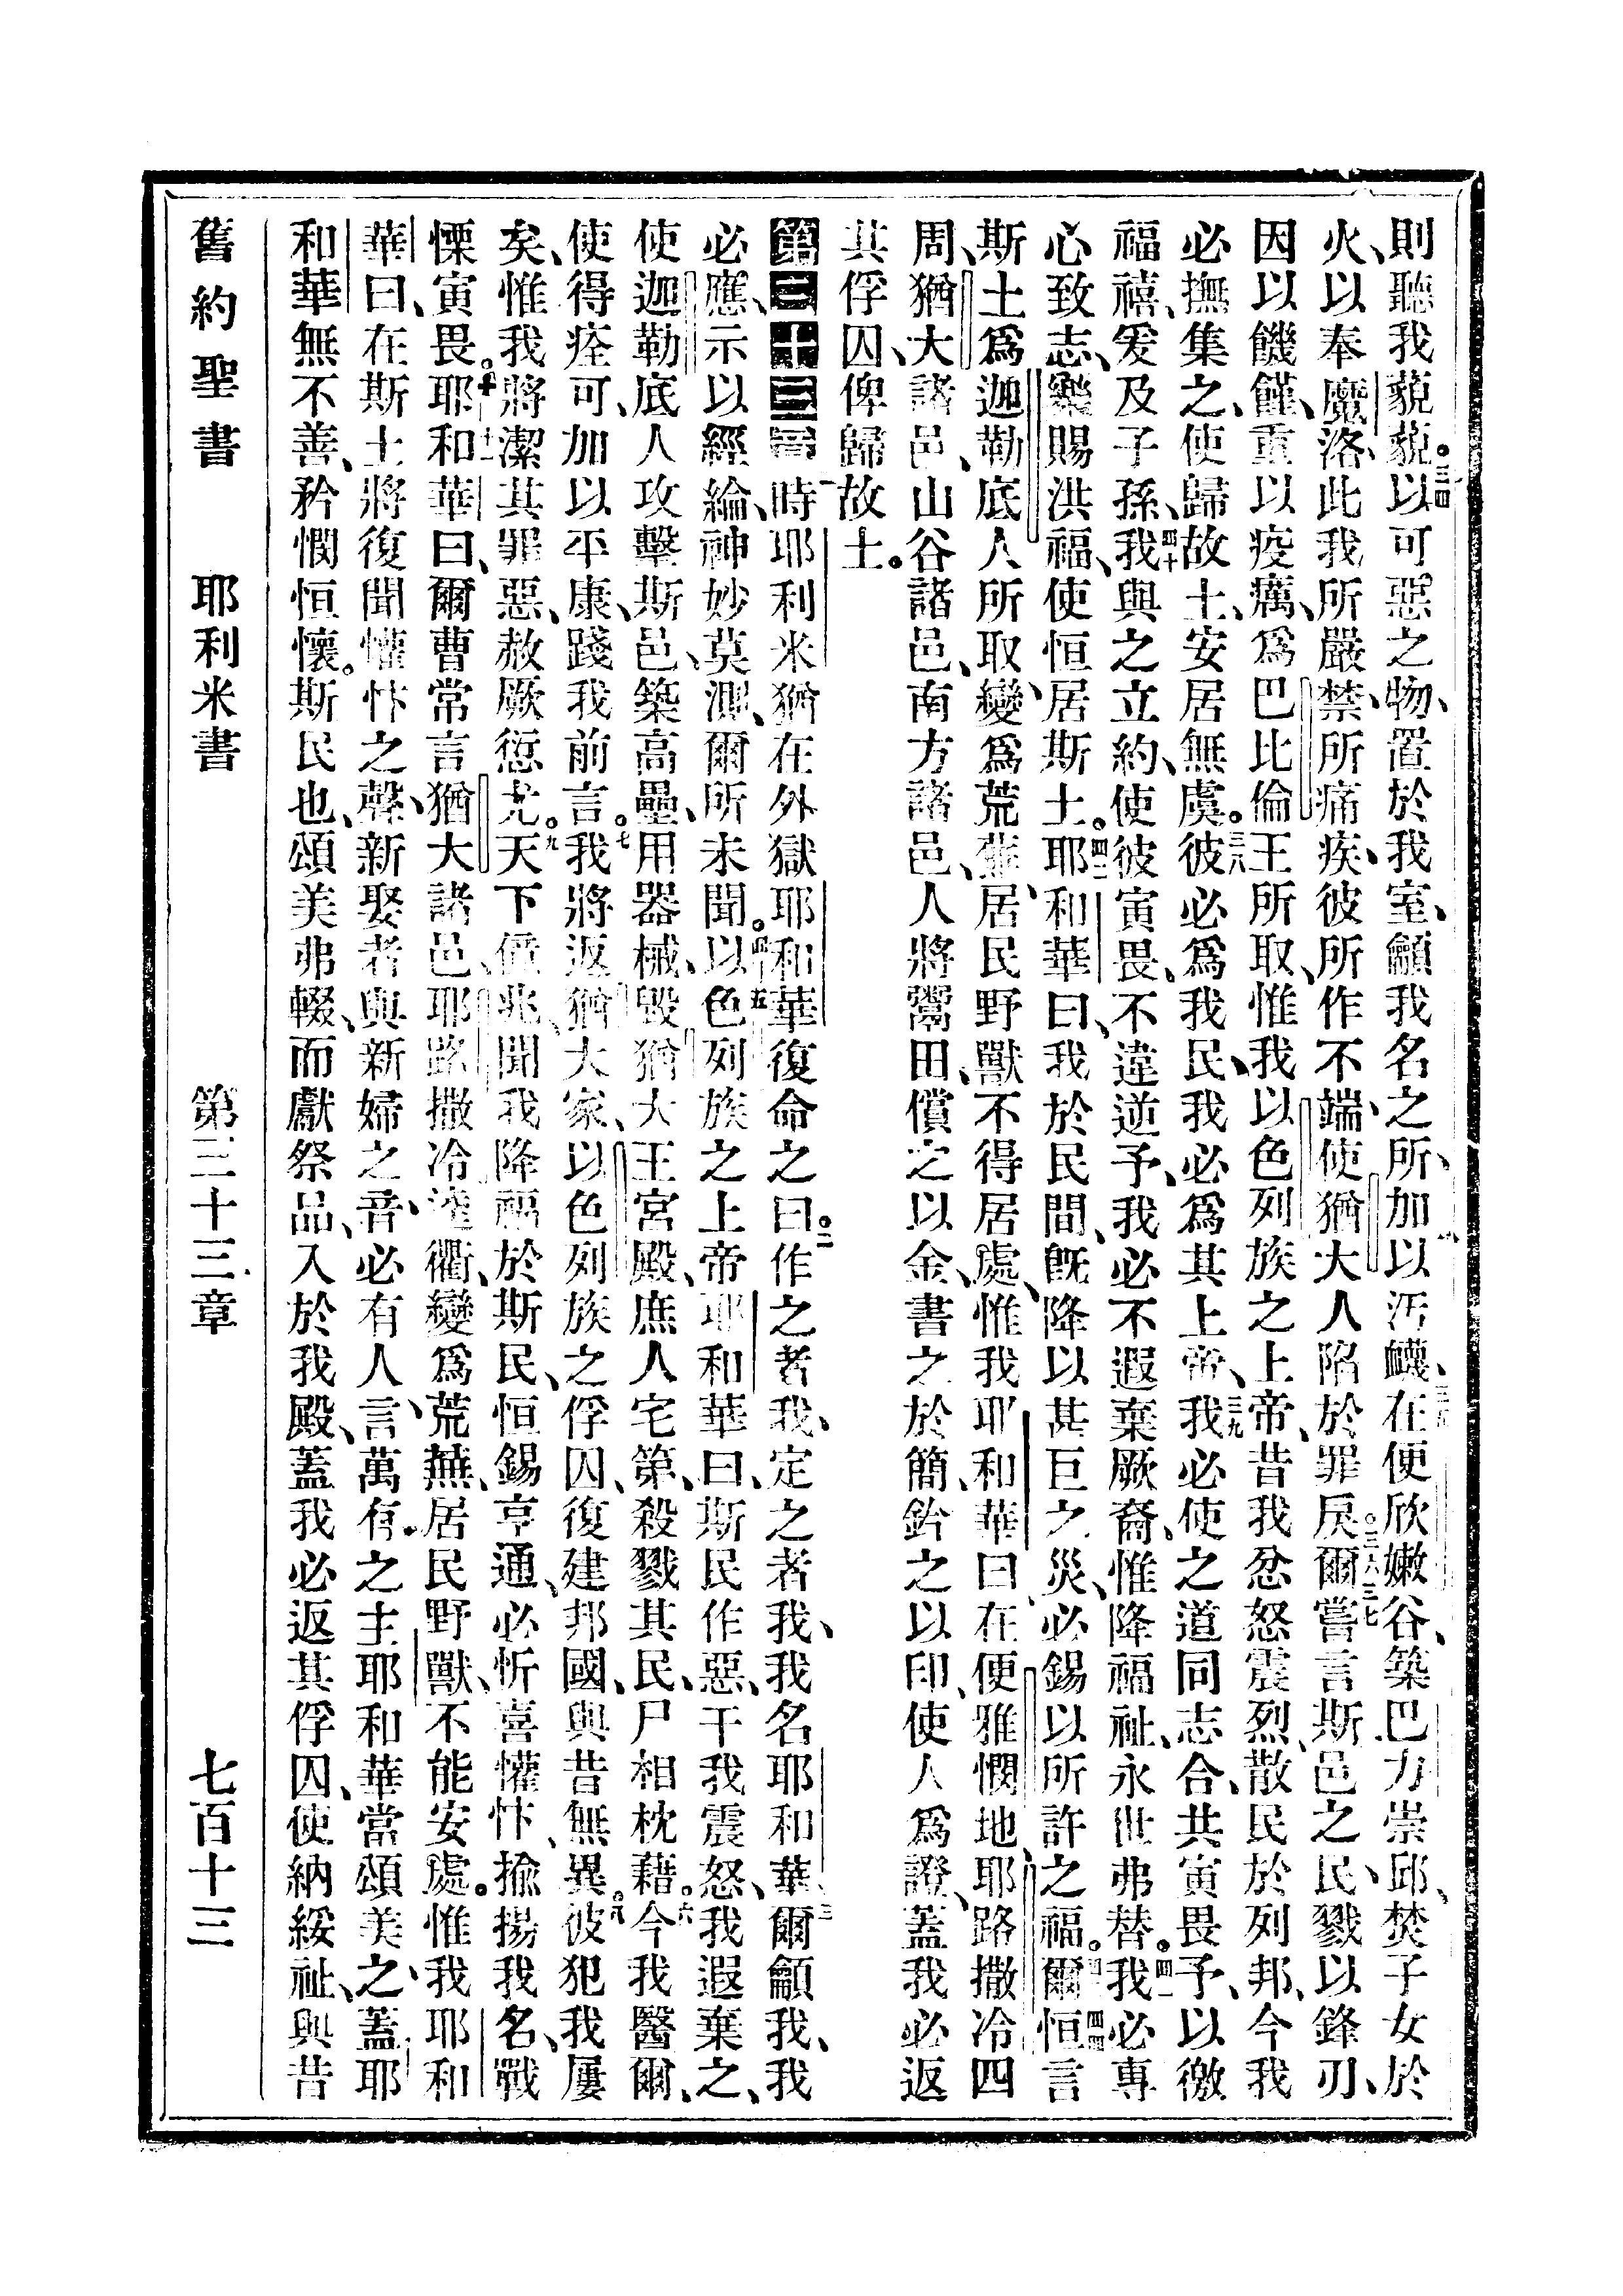 則聽我藐藐、以可惡之物、置於我室、籲我名之所、加以汚衊、在便欣嫩谷、築巴力崇邱、焚子女於
火、以奉魔洛、此我所嚴禁、所痛疾、彼所作不端、使猶大人陷於罪戾、爾嘗言斯邑之民、戮以鋒刃、
因以饑饉、重以疫癘、爲巴比倫王所取、惟我以色列族之上帝、昔我忿怒震烈、散民於列邦、今我
必撫集之、使歸故土、安居無虞。彼必爲我民、我必爲其上帝、我必使之道同志合、共寅畏予、以徼
福禧、爰及子孫、我與之立約、使彼寅畏、不違逆予、我必不遐棄厥裔、惟降福祉、永世弗替。我必專
心致志、樂賜洪福、使恒居斯土。耶和華曰、我於民間、旣降以甚巨之災、必錫以所許之福。爾恒言
斯土爲迦勒底人所取、變爲荒蕪、居民野獸不得居處、惟我耶和華曰、在便雅憫地、耶路撒冷四
周、猶大諸邑、山谷諸邑、南方諸邑、人將鬻田、償之以金、書之於簡、鈐之以印、使人爲證、蓋我必返
其俘囚、俾歸故土。
第三十三章 一時耶利米猶在外獄、耶和華復命之曰。二作之者我、定之者我、我名耶和華、三爾籲我、我
必應、示以經綸、神妙莫測、爾所未聞。四五以色列族之上帝耶和華曰、斯民作惡、干我震怒、我遐棄之、
使迦勒底人攻擊斯邑、築高壘、用器械、毀猶大王宮殿、庶人宅第、殺戮其民、尸相枕藉。六今我醫爾、
使得痊可、加以平康、踐我前言。七我將返猶大家、以色列族之俘囚、復建邦國、與昔無異。八彼犯我屢
矣、惟我將潔其罪惡、赦厥愆尤。九天下億兆、聞我降福於斯民、恒錫亨通、必忻喜懽忭、揄揚我名、戰
慄寅畏。十十一耶和華曰、爾曹常言猶大諸邑、耶路撒冷逵衢、變爲荒蕪、居民野獸、不能安處。惟我耶和
華曰、在斯土將復聞懽忭之聲、新娶者與新婦之音、必有人言、萬有之主耶和華當頌美之、蓋耶
和華無不善、矜憫恒懷。斯民也、頌美弗輟、而獻祭品、入於我殿、蓋我必返其俘囚、使納綏祉、與昔
舊約聖書 耶利米書 第三十三章 七百十三